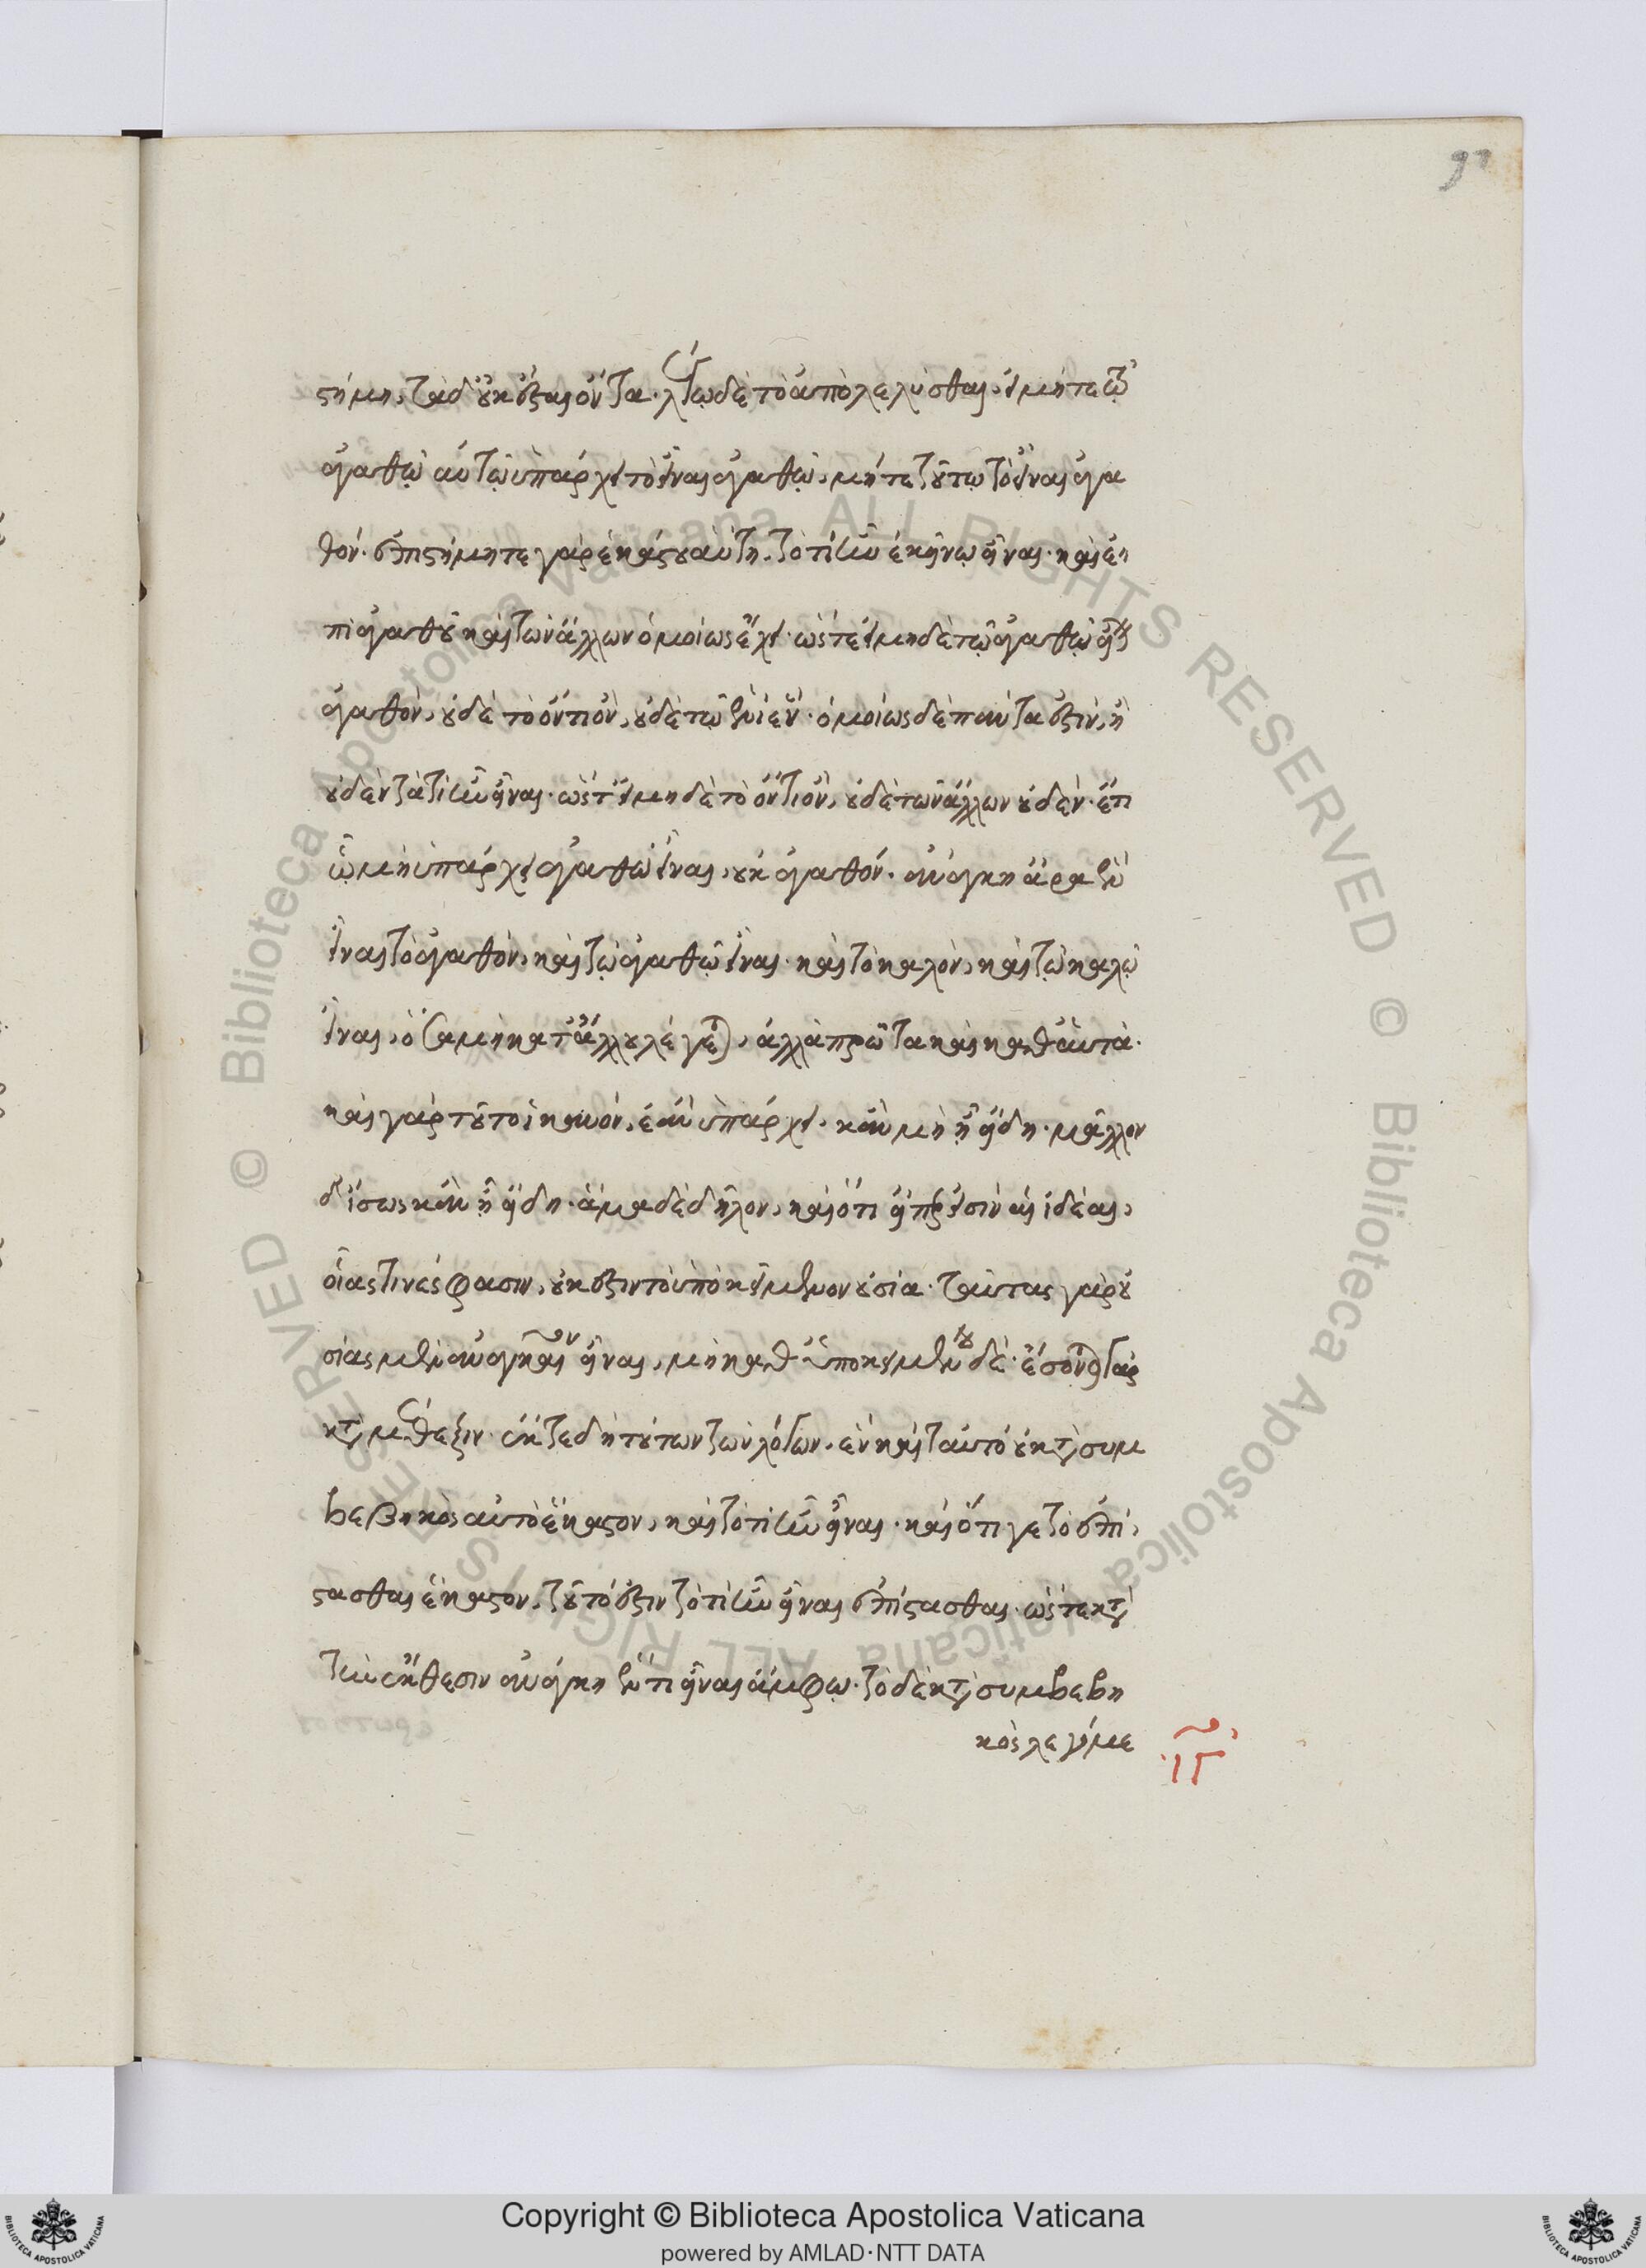 92
στήμη, τὰ δ' οὐκ ἔσται ὄντα. λέγω δὲ τὸ ἀπολελύσθαι, εἰ μήτε τῷ
ἀγαθῷ αὐτῷ ὑπάρχει τὸ εἶναι ἀγαθῷ, μήτε τούτῳ τὸ εἶναι ἀγα
θόν. ἐπιστήμη τε γὰρ ἑκάστου αὕτη, τὸ τί ἦν ἐκείνῳ εἶναι. καὶ ἐ
πὶ ἀγαθοῦ καὶ τῶν ἄλλων ὁμοίως ἔχει. ὥστε εἰ μηδὲ τῷ ἀγαθῷ εἶναι
ἀγαθὸν, οὐδὲ τὸ ὄντι ὂν, οὐδὲ τῷ ἑνὶ ἕν. ὁμοίως δὲ πάντα ἐστὶν, ἢ
οὐδὲν τὰ τί ἦν εἶναι. ὥστ' εἰ μηδὲ τὸ ὄντι ὂν, οὐδὲ τῶν ἄλλων οὐδέν. ἔτι
ᾧ μὴ ὑπάρχει ἀγαθῷ εἶναι, οὐκ ἀγαθόν. ἀνάγκη ἄρα ἓν
εἶναι τὸ ἀγαθὸν, καὶ τῷ ἀγαθῷ εἶναι. καὶ τὸ καλὸν, καὶ τῷ καλῷ
εἶναι, ὅσα μὴ κατ' ἄλλου λέγεται, ἀλλὰ πρῶτα καὶ καθ' αὑτὰ.
καὶ γὰρ τοῦτο ἱκανόν, ἐὰν ὑπάρχει. κἂν μὴ ᾖ εἴδη. μᾶλλον
δ' ἴσως κἂν ᾖ εἴδη. ἅμα δὲ δῆλον, καὶ ὅτι εἴπερ εἰσὶν αἱ ἰδέαι,
οἵας τινές φασιν, οὐκ ἔστιν τὸ ὑποκείμενον οὐσία. ταύτας γὰρ οὐ
σίας μὲν ἀναγκαῖον εἶναι, μὴ καθ' ὑποκειμένου δέ. ἔσονται γὰρ
κατὰ μέθεξιν. ἔκ τε δὴ τούτων τῶν λόγων, ἓν καὶ ταὐτὸ οὐ κατὰ συμ
βεβηκὸς αὐτὸ ἕκαστον, καὶ τὸ τί ἦν εἶναι. καὶ ὅτι γε τὸ ἐπί
στασθαι ἕκαστον, τοῦτό ἐστιν τὸ τί ἦν εἶναι ἐπίστασθαι. ὥστε κατὰ
τὴν ἔκθεσιν ἀνάγκη ἕν τι εἶναι ἄμφω. τὸ δὲ κατὰ συμβεβη
κὸς λεγόμε
Copyright © Biblioteca Apostolica Vaticana
powered by AMLAD·NTT DATA